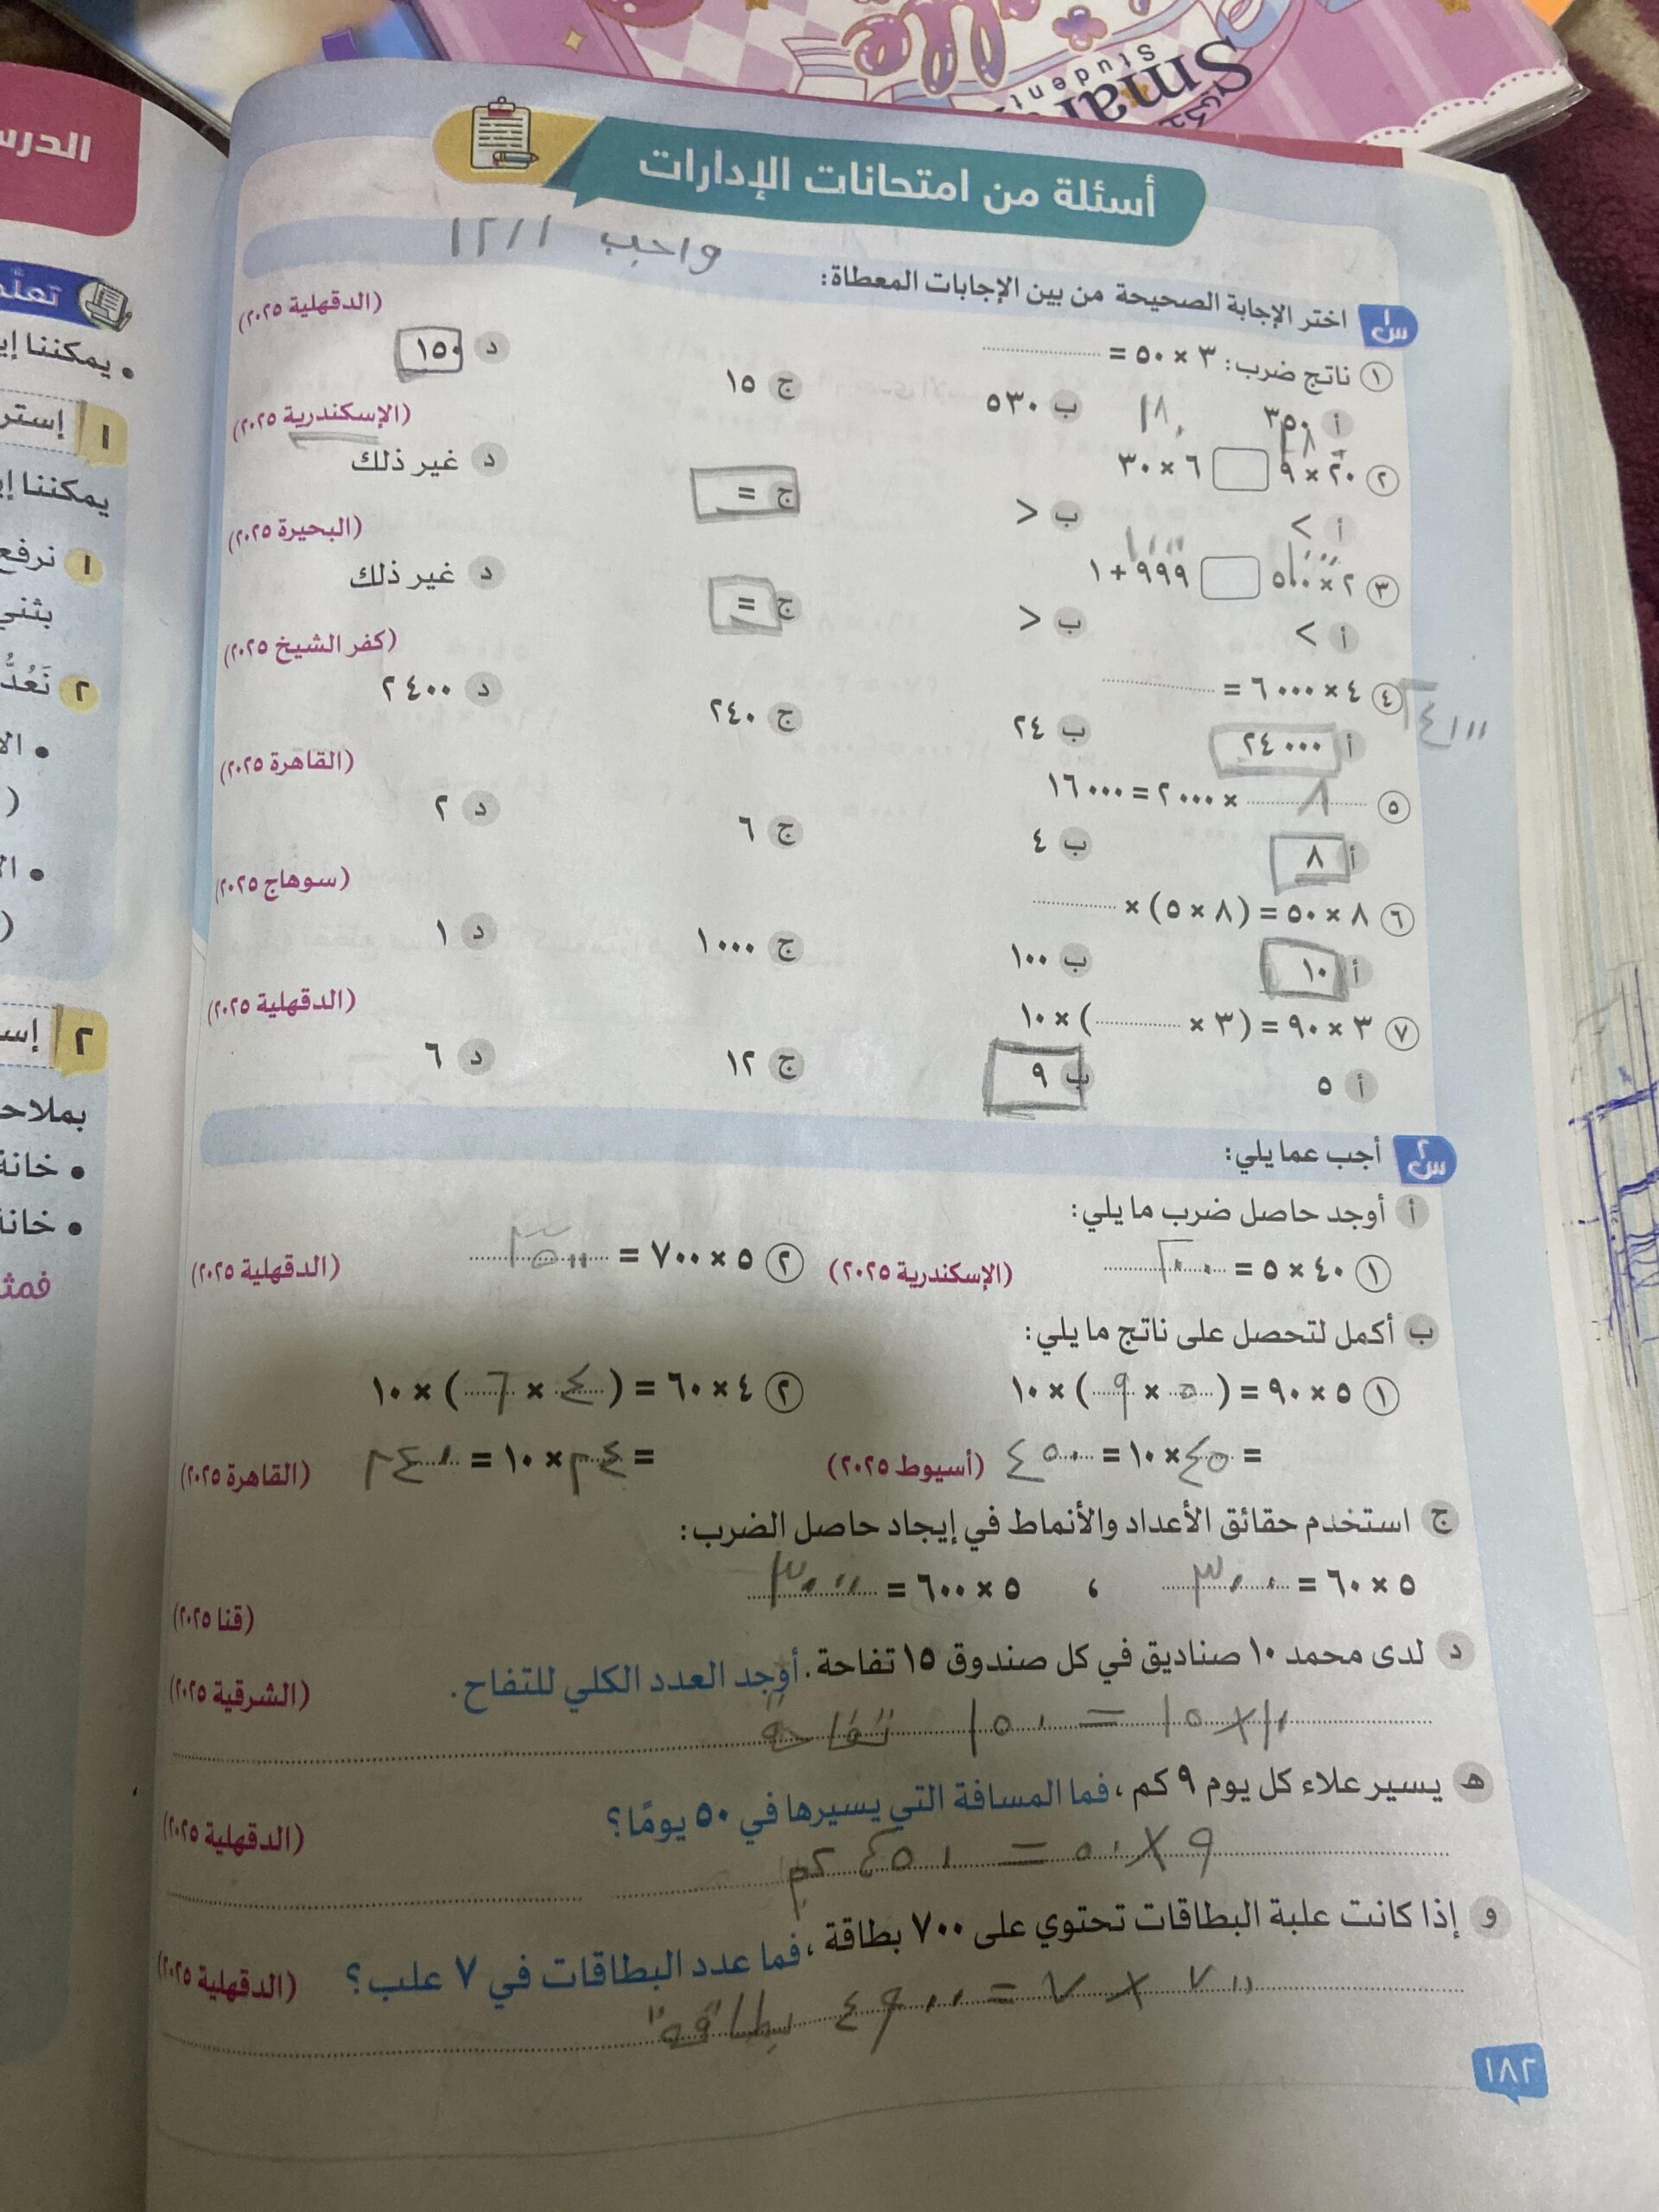 Smart
Student
أسئلة من امتحانات الإدارات
واجب ١٢/١
س١ اختر الإجابة الصحيحة من بين الإجابات المعطاة:
١ ناتج ضرب: ٣ × ٥٠ = (الدقهلية ٢٠٢٥)
أ ٣٥٠ ب ٥٣٠ ج ١٥ د ١٥٠
١٨٠ ١٨٠
٢ ٢٠ × ٩ ٦ × ٣٠ (الإسكندرية ٢٠٢٥)
أ > ب < ج = د غير ذلك
١٠٠٠ ١٠٠٠
٣ ٢ × ٥٠٠ ٩٩٩ + ١ (البحيرة ٢٠٢٥)
أ > ب < ج = د غير ذلك
٤ ٤ × ٦٠٠٠ = (كفر الشيخ ٢٠٢٥)
٢٤٠٠٠
أ ٢٤٠٠٠ ب ٢٤ ج ٢٤٠ د ٢٤٠٠
٥ ٨ × ٢٠٠٠ = ١٦٠٠٠ (القاهرة ٢٠٢٥)
أ ٨ ب ٤ ج ٦ د ٢
٦ ٨ × ٥٠ = (٨ × ٥) × (سوهاج ٢٠٢٥)
أ ١٠ ب ١٠٠ ج ١٠٠٠ د ١
٧ ٣ × ٩٠ = (٣ × ) × ١٠ (الدقهلية ٢٠٢٥)
أ ٥ ب ٩ ج ١٢ د ٦
س٢ أجب عما يلي:
أ أوجد حاصل ضرب ما يلي:
١ ٤٠ × ٥ = ٢٠٠ (الإسكندرية ٢٠٢٥) ٢ ٥ × ٧٠٠ = ٣٥٠٠ (الدقهلية ٢٠٢٥)
ب أكمل لتحصل على ناتج ما يلي:
١ ٥ × ٩٠ = (٥ × ٩) × ١٠ ٢ ٤ × ٦٠ = (٤ × ٦) × ١٠
= ٤٥ × ١٠ = ٤٥٠ (أسيوط ٢٠٢٥) = ٢٤ × ١٠ = ٢٤٠ (القاهرة ٢٠٢٥)
ج استخدم حقائق الأعداد والأنماط في إيجاد حاصل الضرب:
٥ × ٦٠ = ٣٠٠ ، ٥ × ٦٠٠ = ٣٠٠٠ (قنا ٢٠٢٥)
د لدى محمد ١٠ صناديق في كل صندوق ١٥ تفاحة. أوجد العدد الكلي للتفاح. (الشرقية ٢٠٢٥)
١٠ × ١٥ = ١٥٠ تفاحة
هـ يسير علاء كل يوم ٩ كم، فما المسافة التي يسيرها في ٥٠ يومًا؟ (الدقهلية ٢٠٢٥)
٩ × ٥٠ = ٤٥٠ كم
و إذا كانت علبة البطاقات تحتوي على ٧٠٠ بطاقة، فما عدد البطاقات في ٧ علب؟ (الدقهلية ٢٠٢٥)
٧٠٠ × ٧ = ٤٩٠٠ بطاقة
١٨٢
الدرس
تعلم
• يمكننا
١
يمكننا
١ نرفع
٢ نَعُدُّ
٢
• خانة
• خانة